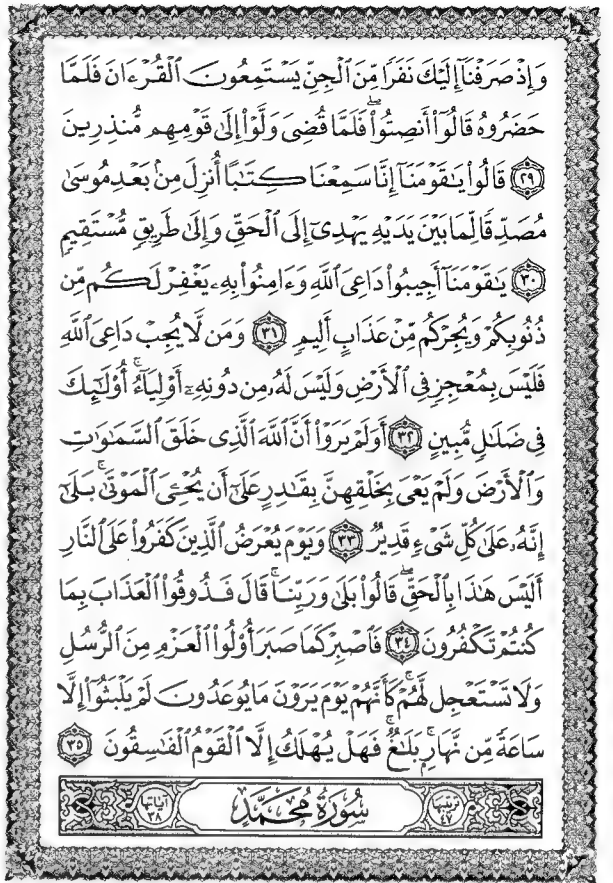 وَإِذْ صَرَفْنَآ إِلَيْكَ نَفَرًا مِّنَ ٱلْجِنِّ يَسْتَمِعُونَ ٱلْقُرْءَانَ فَلَمَّا
حَضَرُوهُ قَالُوٓا۟ أَنصِتُوا۟ ۖ فَلَمَّا قُضِىَ وَلَّوْا۟ إِلَىٰ قَوْمِهِم مُّنذِرِينَ
٢٩ قَالُوا۟ يَـٰقَوْمَنَآ إِنَّا سَمِعْنَا كِتَـٰبًا أُنزِلَ مِنۢ بَعْدِ مُوسَىٰ
مُصَدِّقًا لِّمَا بَيْنَ يَدَيْهِ يَهْدِىٓ إِلَى ٱلْحَقِّ وَإِلَىٰ طَرِيقٍ مُّسْتَقِيمٍ
٣٠ يَـٰقَوْمَنَآ أَجِيبُوا۟ دَاعِىَ ٱللَّهِ وَءَامِنُوا۟ بِهِۦ يَغْفِرْ لَكُم مِّن
ذُنُوبِكُمْ وَيُجِرْكُم مِّنْ عَذَابٍ أَلِيمٍ ٣١ وَمَن لَّا يُجِبْ دَاعِىَ ٱللَّهِ
فَلَيْسَ بِمُعْجِزٍ فِى ٱلْأَرْضِ وَلَيْسَ لَهُۥ مِن دُونِهِۦٓ أَوْلِيَآءُ ۚ أُو۟لَـٰٓئِكَ
فِى ضَلَـٰلٍ مُّبِينٍ ٣٢ أَوَلَمْ يَرَوْا۟ أَنَّ ٱللَّهَ ٱلَّذِى خَلَقَ ٱلسَّمَـٰوَٰتِ
وَٱلْأَرْضَ وَلَمْ يَعْىَ بِخَلْقِهِنَّ بِقَـٰدِرٍ عَلَىٰٓ أَن يُحْـِۧىَ ٱلْمَوْتَىٰ ۚ بَلَىٰٓ
إِنَّهُۥ عَلَىٰ كُلِّ شَىْءٍ قَدِيرٌ ٣٣ وَيَوْمَ يُعْرَضُ ٱلَّذِينَ كَفَرُوا۟ عَلَى ٱلنَّارِ
أَلَيْسَ هَـٰذَا بِٱلْحَقِّ ۖ قَالُوا۟ بَلَىٰ وَرَبِّنَا ۚ قَالَ فَذُوقُوا۟ ٱلْعَذَابَ بِمَا
كُنتُمْ تَكْفُرُونَ ٣٤ فَٱصْبِرْ كَمَا صَبَرَ أُو۟لُوا۟ ٱلْعَزْمِ مِنَ ٱلرُّسُلِ
وَلَا تَسْتَعْجِل لَّهُمْ ۚ كَأَنَّهُمْ يَوْمَ يَرَوْنَ مَا يُوعَدُونَ لَمْ يَلْبَثُوٓا۟ إِلَّا
سَاعَةً مِّن نَّهَارٍۭ ۚ بَلَـٰغٌ ۚ فَهَلْ يُهْلَكُ إِلَّا ٱلْقَوْمُ ٱلْفَـٰسِقُونَ ٣٥
ترتيبها ٤٧ سُورَةُ مُحَمَّدٍ آياتها ٣٨